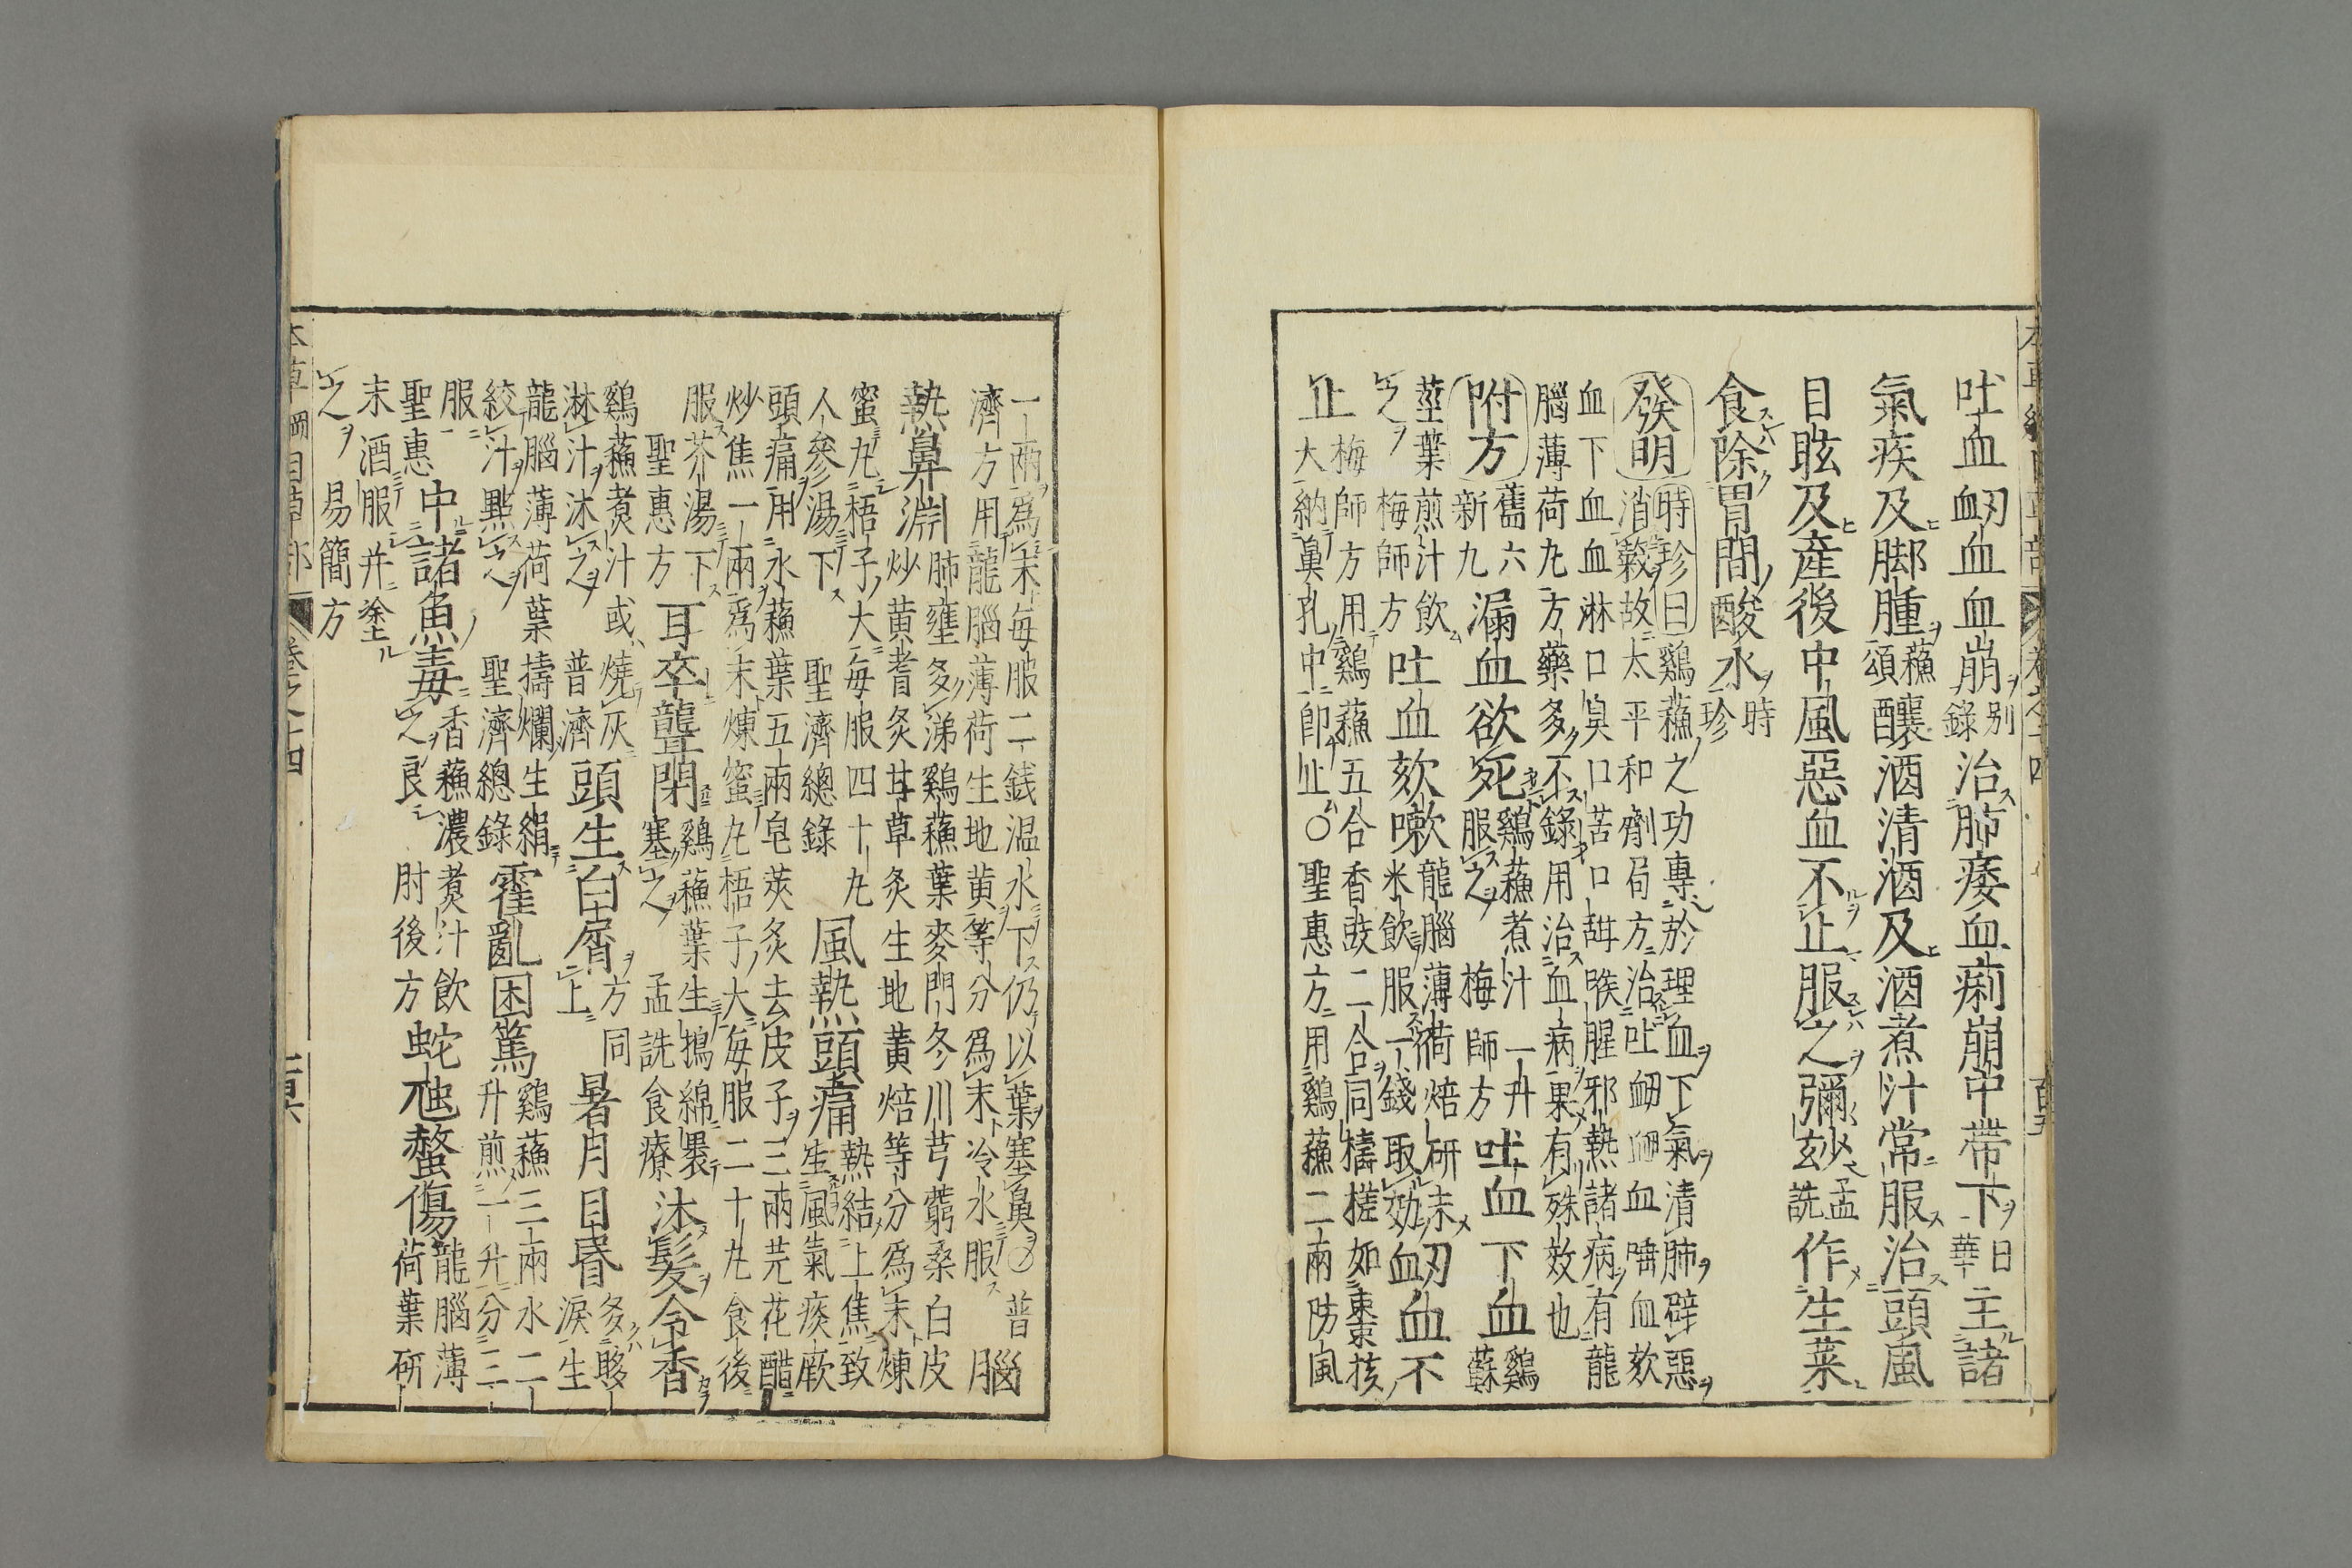 吐血衂血血崩別錄治肺痿血痢崩中帶下日華主諸
氣疾及脚腫蘇頌釀酒清酒及酒煮汁常服治頭風
目眩及產後中風惡血不止服之彌妙孟詵作生菜
食除胃間酸水時珍
發明時珍曰鷄蘇之功專於理血下氣清肺辟惡
消穀故太平和劑局方治吐衂衄血唾血欬
血下血血淋口臭口苦口甜喉腥邪熱諸病有龍
腦薄荷丸方藥多不錄用治血病果有殊效也
附方舊六新九漏血欲死鷄蘇煮汁一升服之梅師方吐血下血鷄蘇
莖葉煎汁飲之梅師方吐血欬嗽龍腦薄荷焙研末米飲服一錢取効衂血不
止梅師方用鷄蘇五合香豉二合同擣搓如棗核
大納鼻孔中即止○聖惠方用鷄蘇二兩防風
一兩爲末每服二錢温水下仍以葉塞鼻○普
濟方用龍腦薄荷生地黄等分爲末冷水服腦
熱鼻淵肺壅多涕鷄蘇葉麥門冬川芎藭桑白皮
炒黄耆炙甘草炙生地黄焙等分爲末煉
蜜丸梧子大每服四十丸人參湯下聖濟總錄風熱頭痛熱結上焦致生風氣痰厥
頭痛用水蘇葉五兩皂莢炙去皮子三兩芫花醋
炒焦一兩爲末煉蜜丸梧子大每服二十丸食後
服芥湯下聖惠方耳卒聾閉鷄蘇葉生搗綿裹塞之孟詵食療沐髮令香
鷄蘇煮汁或燒灰淋汁沐之普濟頭生白屑方同上暑月目昏多眵淚生
龍腦薄荷葉擣爛生絹絞汁點之聖濟總錄霍亂困篤鷄蘇三兩水二升煎一升分三
服聖惠中諸魚毒香蘇濃煮汁飲之良肘後方蛇虺螫傷龍腦薄荷葉研
末酒服并塗之易簡方
本草綱目草部 卷之十四